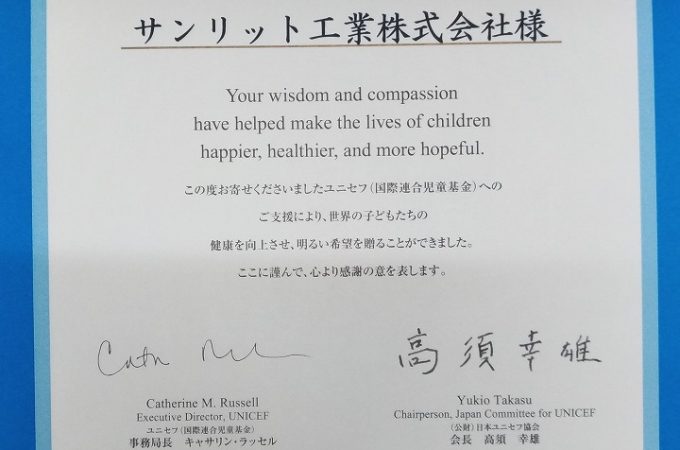 サンリット工業株式会社様
Your wisdom and compassion
have helped make the lives of children
happier, healthier, and more hopeful.
この度お寄せくださいましたユニセフ(国際連合児童基金)への
ご支援により、世界の子どもたちの
健康を向上させ、明るい希望を贈ることができました。
ここに謹んで、心より感謝の意を表します。
高須幸雄
Catherine M. Russell
Executive Director, UNICEF
ユニセフ(国際連合児童基金)
事務局長 キャサリン・ラッセル
Yukio Takasu
Chairperson, Japan Committee for UNICEF
(公財)日本ユニセフ協会
会長 高須 幸雄